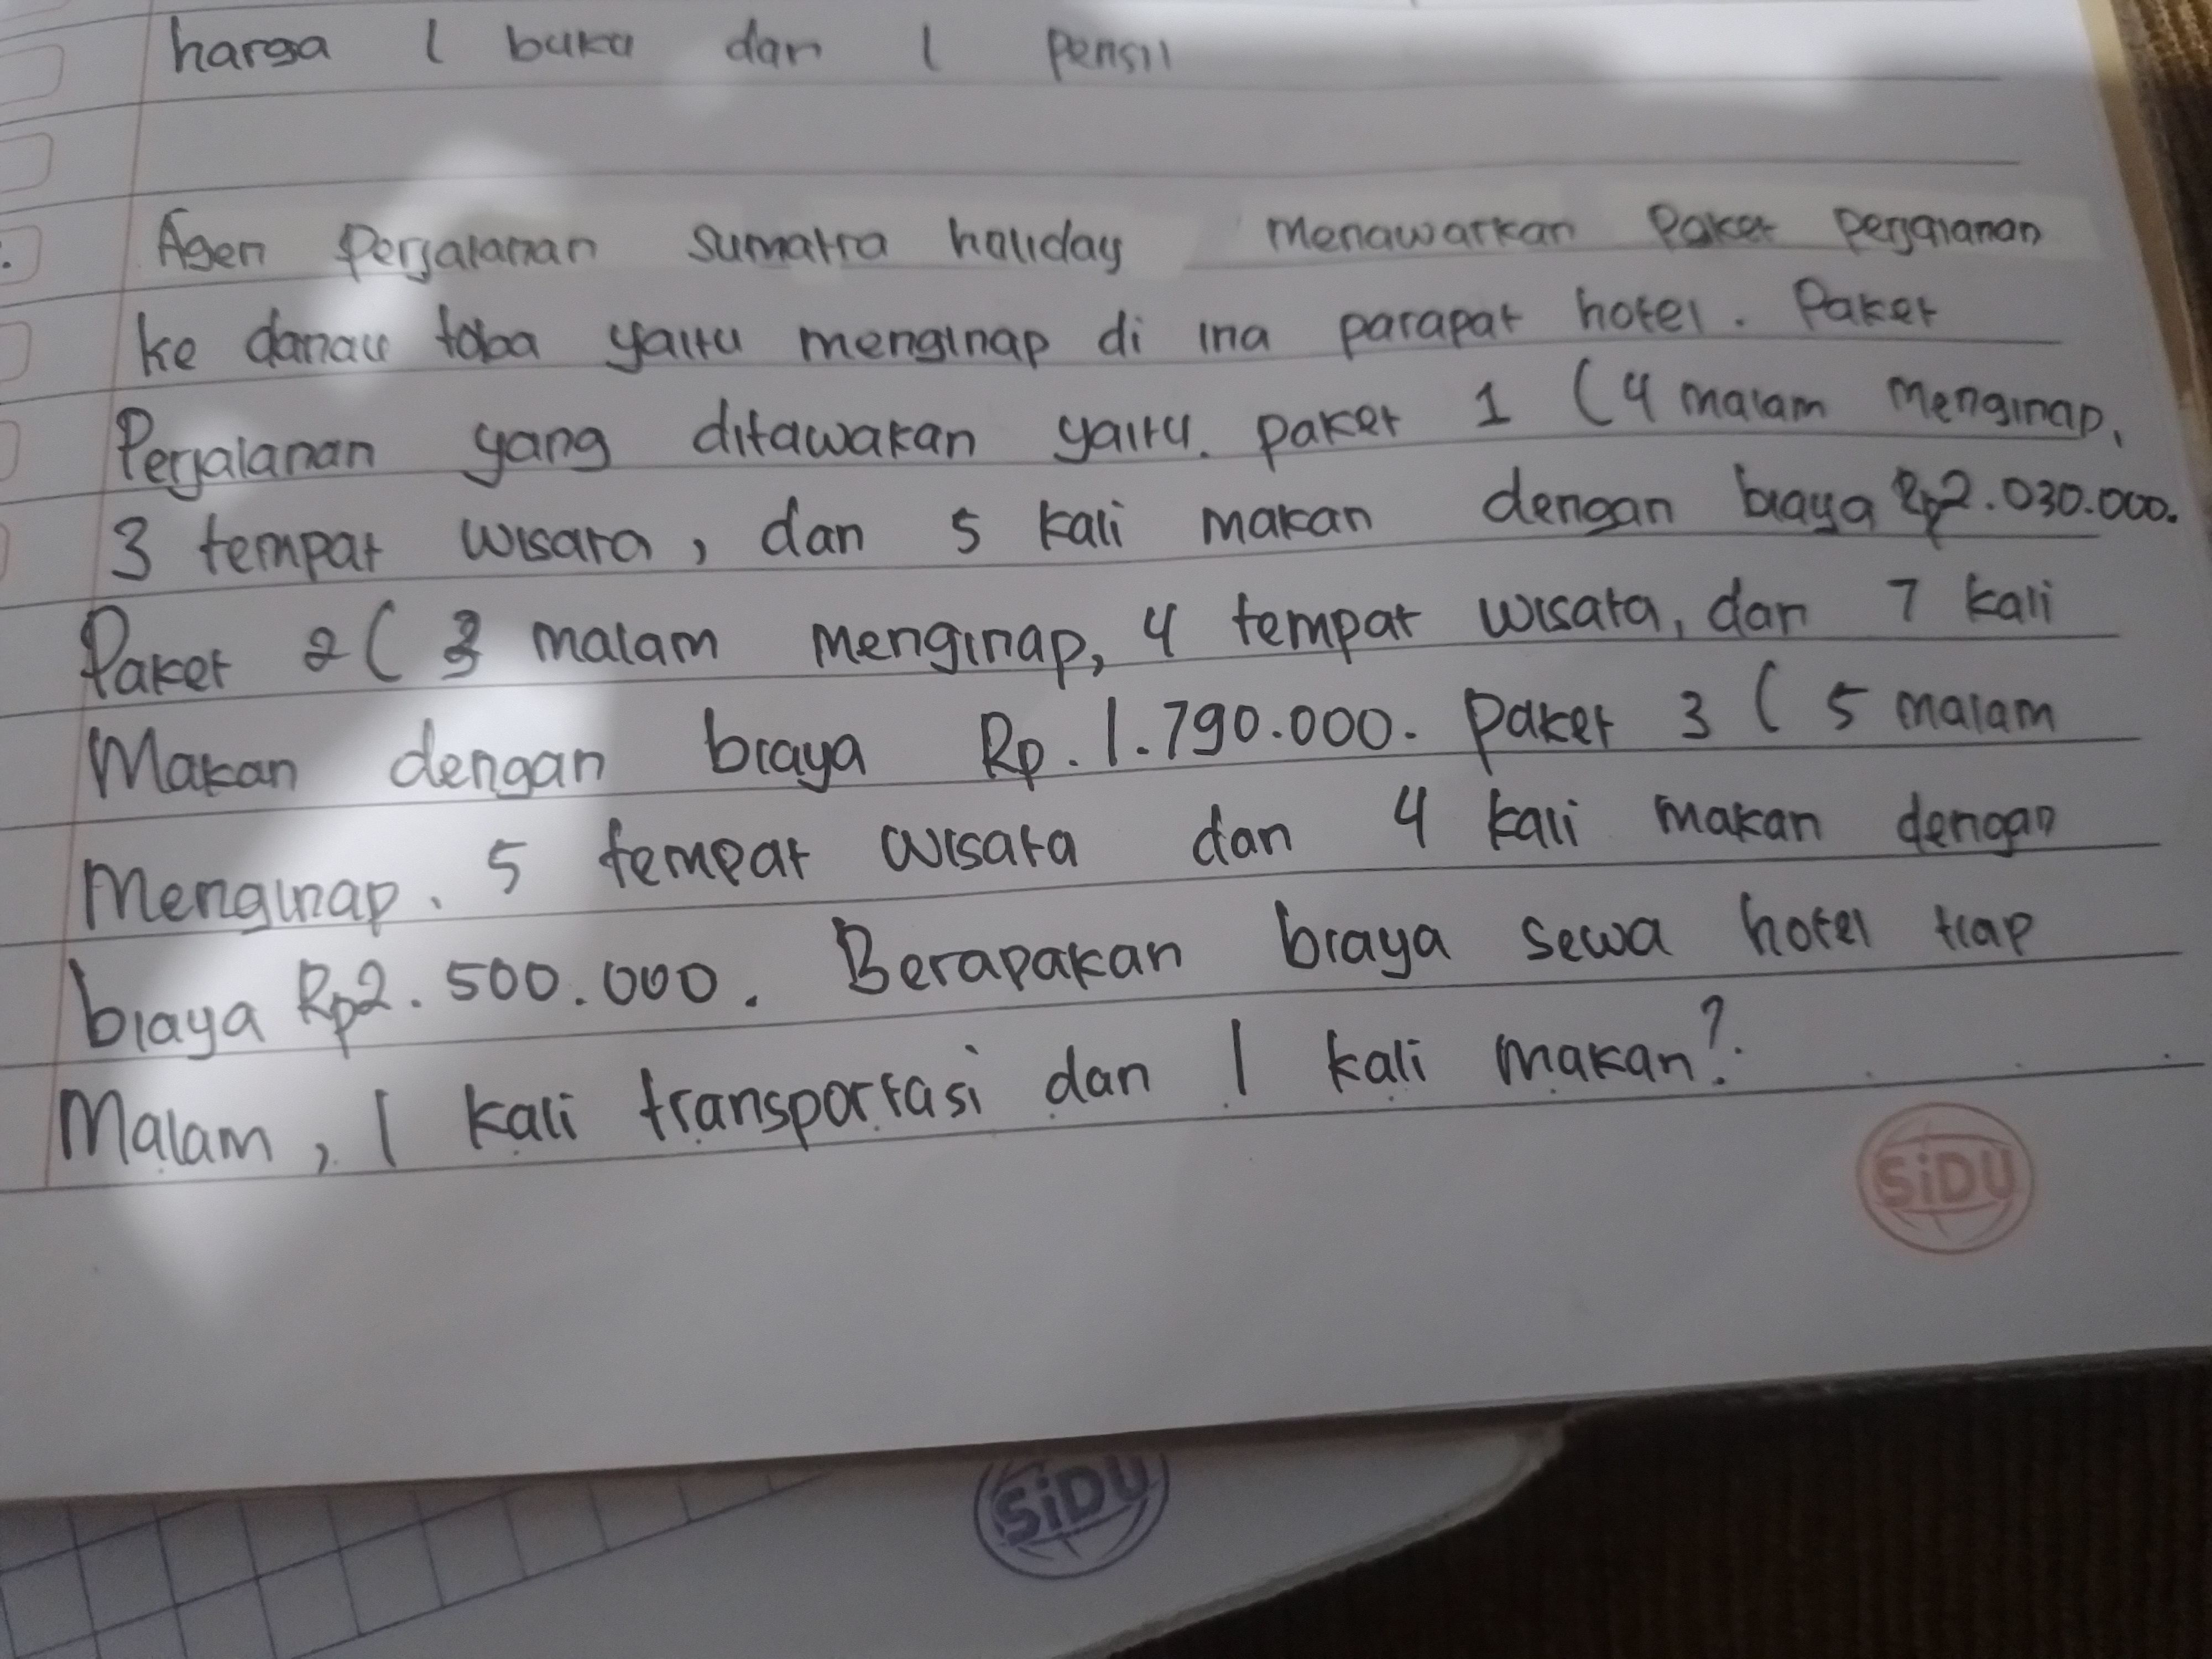 harga 1 buku dan 1 pensil
Agen perjalanan sumatra holiday menawarkan paket perjalanan
ke danau toba yaitu menginap di ina parapat hotel. Paket
Perjalanan yang ditawakan yaitu. paket 1 (4 malam menginap,
3 tempat wisata, dan 5 kali makan dengan biaya Rp2.030.000.
Paket 2 ( 3 malam menginap, 4 tempat wisata, dan 7 kali
Makan dengan biaya Rp.1.790.000. Paket 3 ( 5 malam
Menginap. 5 tempat wisata dan 4 kali makan dengan
biaya Rp2.500.000. Berapakan biaya sewa hotel tiap
Malam, 1 kali transportasi dan 1 kali makan?.
SiDU
SiDU